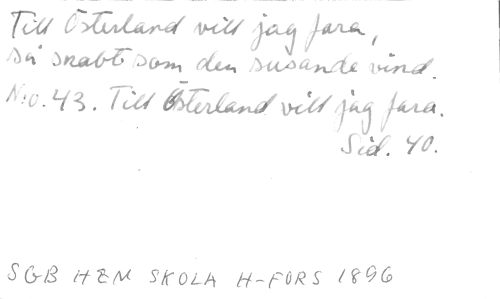 Till Österland vill jag fara,
så snabt som den susande vind.
N:o. 43. Till Österland vill jag fara.
Sid. 40.
SGB HEM SKOLA H-FORS 1896